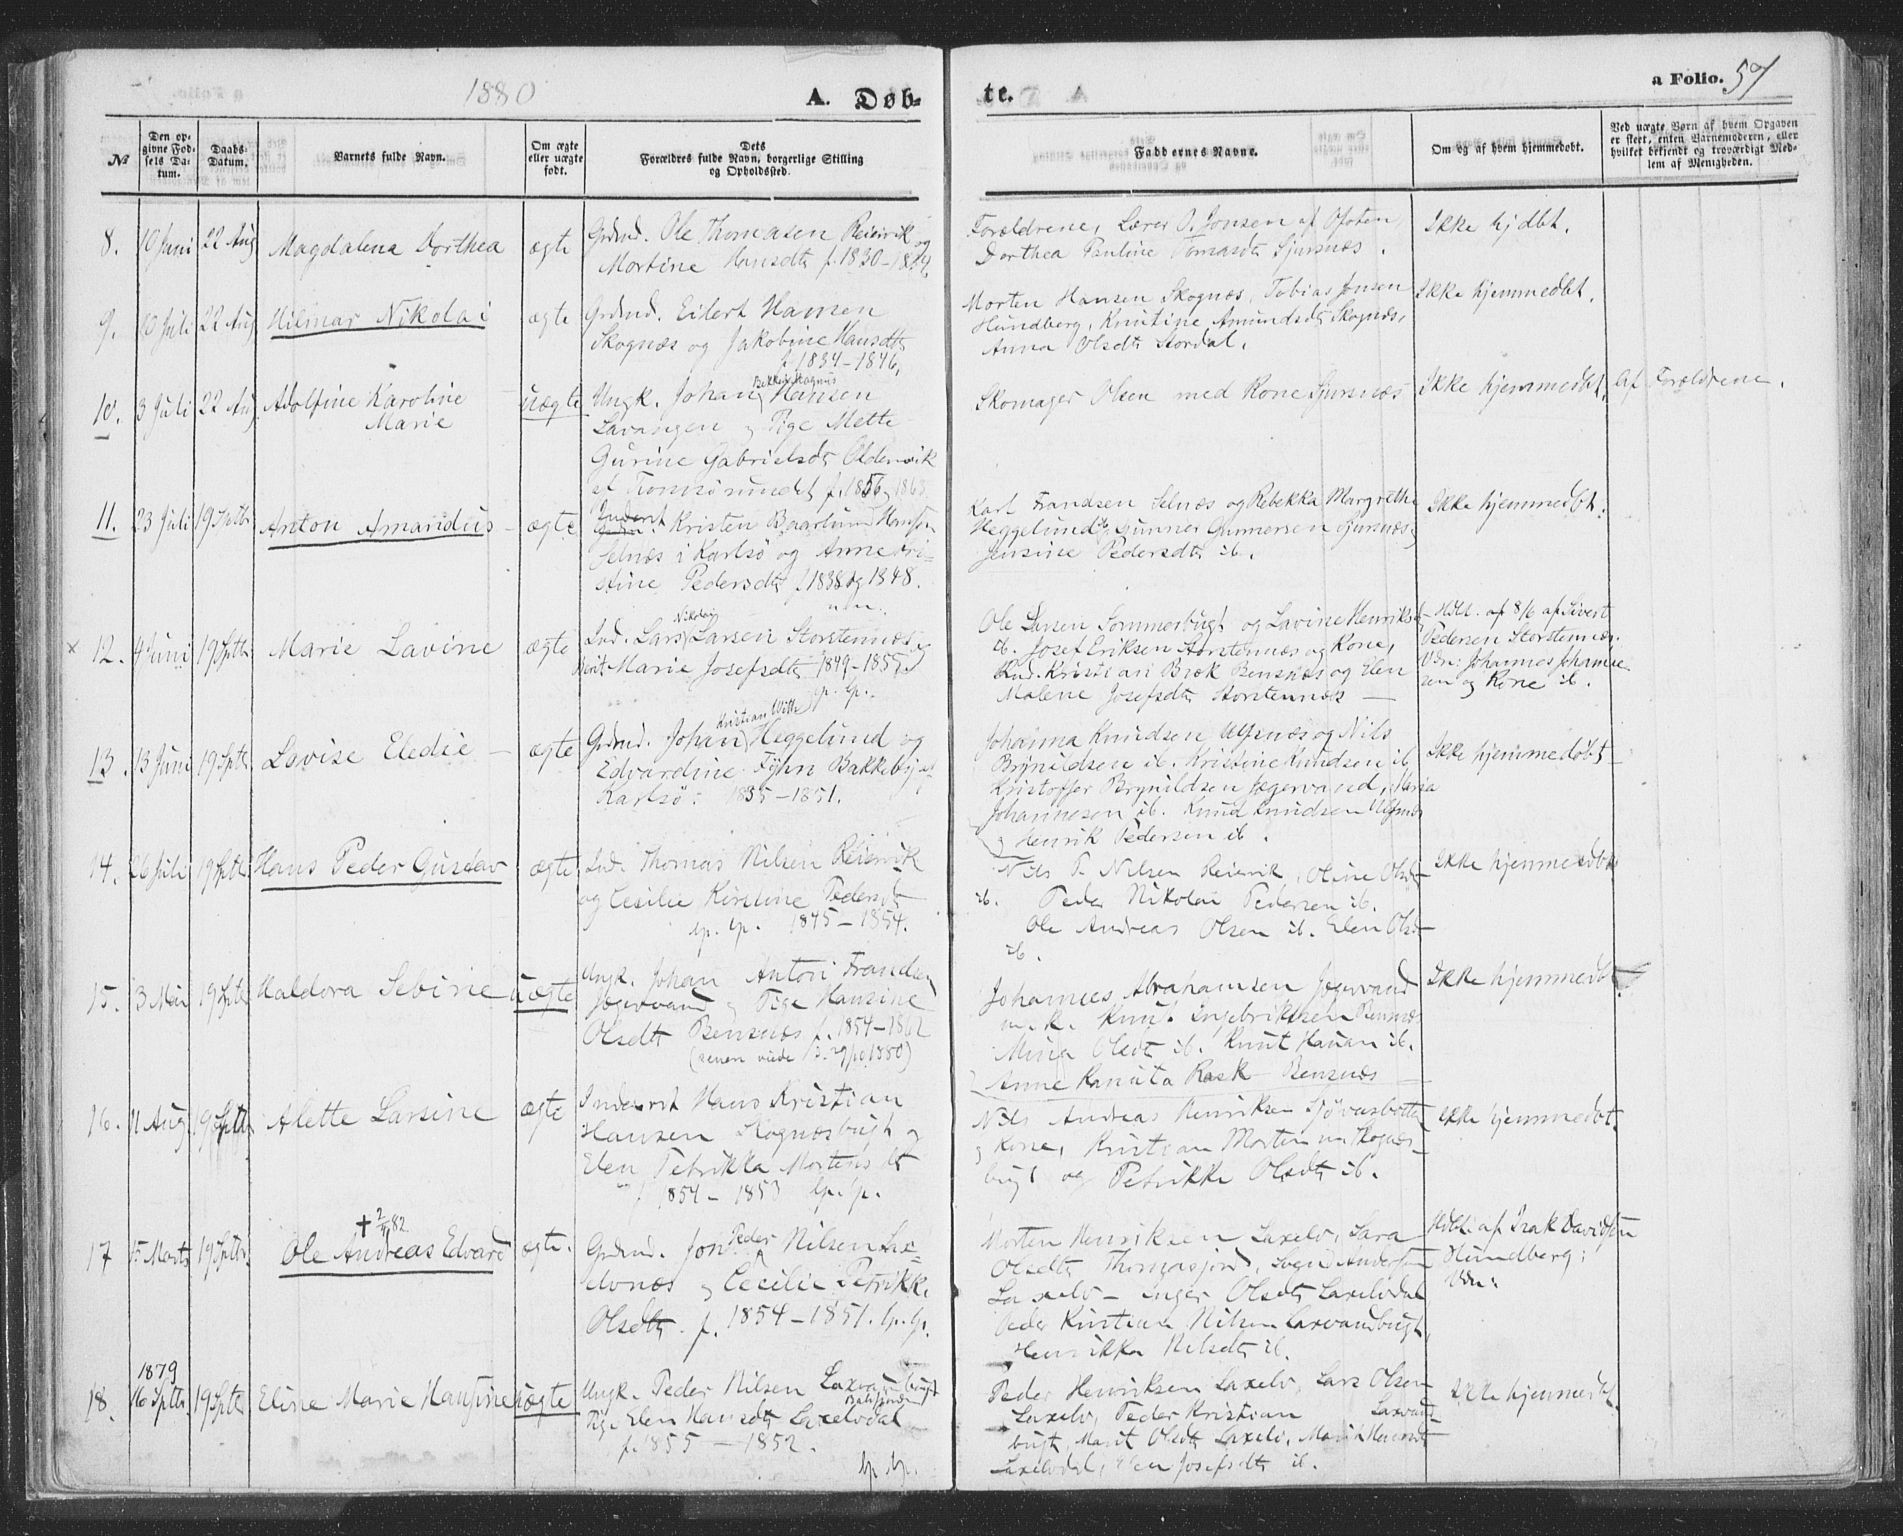 1880
A. Døb-
te.
a Folio. 57
№
Den op-
givne Fød-
sels Da-
tum.
Daabs-
Datum.
Barnets fulde Navn.
Om ægte
eller uægte
født.
Dets
Forældres fulde Navn, borgerlige Stilling
og Opholdssted.
Faddernes Navne.
Om og af hvem hjemmedøbt.
Ved uægte Børn af hvem Opgaven
er skeet, enten Barnemoderen, eller
hvilket bekjendt og troværdigt Med-
lem af Menigheden.
8. 10 Juni 22 Aug Magdalena Dorthea ægte
Grdmd. Ole Thomasen Reiervik og
Martine Hansdtr f. 1830-1834
Forældrene, Lærer O. Jonsen af Ofoten
Dorthea Pauline Tomasdtr Sjursnæs.
Ikke hjdbt.
9. 10 Juli 22 Aug Hilmar Nikolai ægte
Grdmd. Eilert Hansen
Skognæs og Jakobine Hansdtr
f. 1834-1846.
Morten Hansen Skognæs, Tobias Jonsen
Hundberg, Knutine Amundsdtr Skognæs,
Anna Olsdtr Stordal.
Ikke hjemmedbt.
10. 3 Juli 22 Aug Adolfine Karoline
Marie
uægte
Ungk. Johan Hansen
Lavangen og Pige Mette
Gurine Gabrielsdtr Oldervik
af Tromsøsundet f. 1856, 1863
Skomager Olsen med Kone Sjursnæs
Ikke hjemmedbt.
Af Forældrene.
11. 23 Juli 19 Sptb Anton Amandus ægte
Inderst Kristen Baarlund Hansen
Selnæs i Karlsø og Anne Kri-
stine Pedersdtr f. 1838 og 1848.
Karl Frandsen Selnæs og Rebekka Margrethe
Heggelund ib, Gunner Gunnersen Sjursnæs
Jensine Pedersdtr ib.
Ikke hjemmedbt.
12. 4 Juni 19 Sptb Marie Lavine ægte
Nikolai
Ind. Lars Larsen Storstennæs og
Berit Marie Josefsdtr 1849-1855
lp. lp.
Ole Larsen Sommerbugt og Lavine Henriksdt
ib. Josef Eriksen Storstennæs og Kone,
Ind. Kristian Bæk Bensnæs og Elen
Malene Josefsdtr Storstennæs
Hdbt. af 8/6 af Sivert
Pedersen Storstennæs.
Vdn: Johannes Johanne-
sen og Kone ib.
13. 13 Juni 19 Sptb Lovise Eledie ægte
Kristian With
Grdmd. Johan Heggelund og
Edvardine Fyhn Bakkeby af
Karlsø: 1855-1851.
Johanna Knudsen Ulfsnæs og Nils
Brynildsen ib. Kristine Knudsen ib,
Kristoffer Brynildsen Jægervand, Maria
Johannesen ib. Knud Knudsen Ulfsnæs
og Henrik Pedersen ib.
Ikke hjemmedøbt
14. 26 Juli 19 Sptb Hans Peder Gustav ægte
Ind. Thomas Nilsen Reiervik
og Cecilie Kirstine Pedersdt
lp. lp. 1845-1854.
Nils T. Nilsen Reiervik, Oline Olsdtr
ib. Peder Nikolai Pedersen ib.
Ole Andreas Olsen ib. Elen Olsdt
ib.
Ikke hjemmedøbt
15. 3 Mai 19 Sptb Haldora Sebine uægte
Ungk. Johan Anton Frandsen
Jægervand og Pige Hansine
Olsdtr Bensnæs f. 1854-1862
Johannes Abrahamsen Jægervand
m. k. Knut Ingebriktsen Bensnæs
Mina Olsdt ib. Knut Hauan ib.
Anne Kanuta Rask Bensnæs
Ikke hjemmedbt
16. 11 Aug 19 Sptb Alette Larsine ægte
Inderst Hans Kristian
Hansen Skognæsbugt og
Elen Petrikka Mortensdt
f. 1854-1853 lp. lp.
Nils Andreas Henriksen Sjøvasbotten
og Kone, Kristian Mortensen Skognæs-
bugt og Petrikke Olsdtr ib.
Ikke hjemmedbt.
✝ 2/4 82
17 15 Marts 19 Sptb. Ole Andreas Edvard ægte.
Peder
Grdmd. Jon Nilsen Lax-
elvnæs og Cecilie Petrikk.
Olsdtr. f. 1854-1851. lp. lp.
Morten Henriksen Laxelv, Sara
Olsdtr Thomasjord, Andersen
Laxelv - Inger Olsdtr Laxelvdal
Peder Kristian Nilsen Laxvandbugt,
Henrikka Nilsdtr ib.
Hdbt. af Isak Davidsen
Hundberg:
Vdn:
1879
18. 16 Sptb 19 Sptb Eline Marie Hansine uægte
Ungk. Peder Nilsen Laxvandbugt
Balsfjorden
Pige Elen Hansdtr Laxelvdal
f. 1855-1852.
lp. lp.
Peder Henriksen Laxelv, Lars Olsen
Laxelv, Peder Kristian Laxvand-
bugt, Marit Olsdtr Laxelv, Marit Henriksdt
Laxelvdal, Elen Josefsdtr ib.
Ikke hjemmedbt.